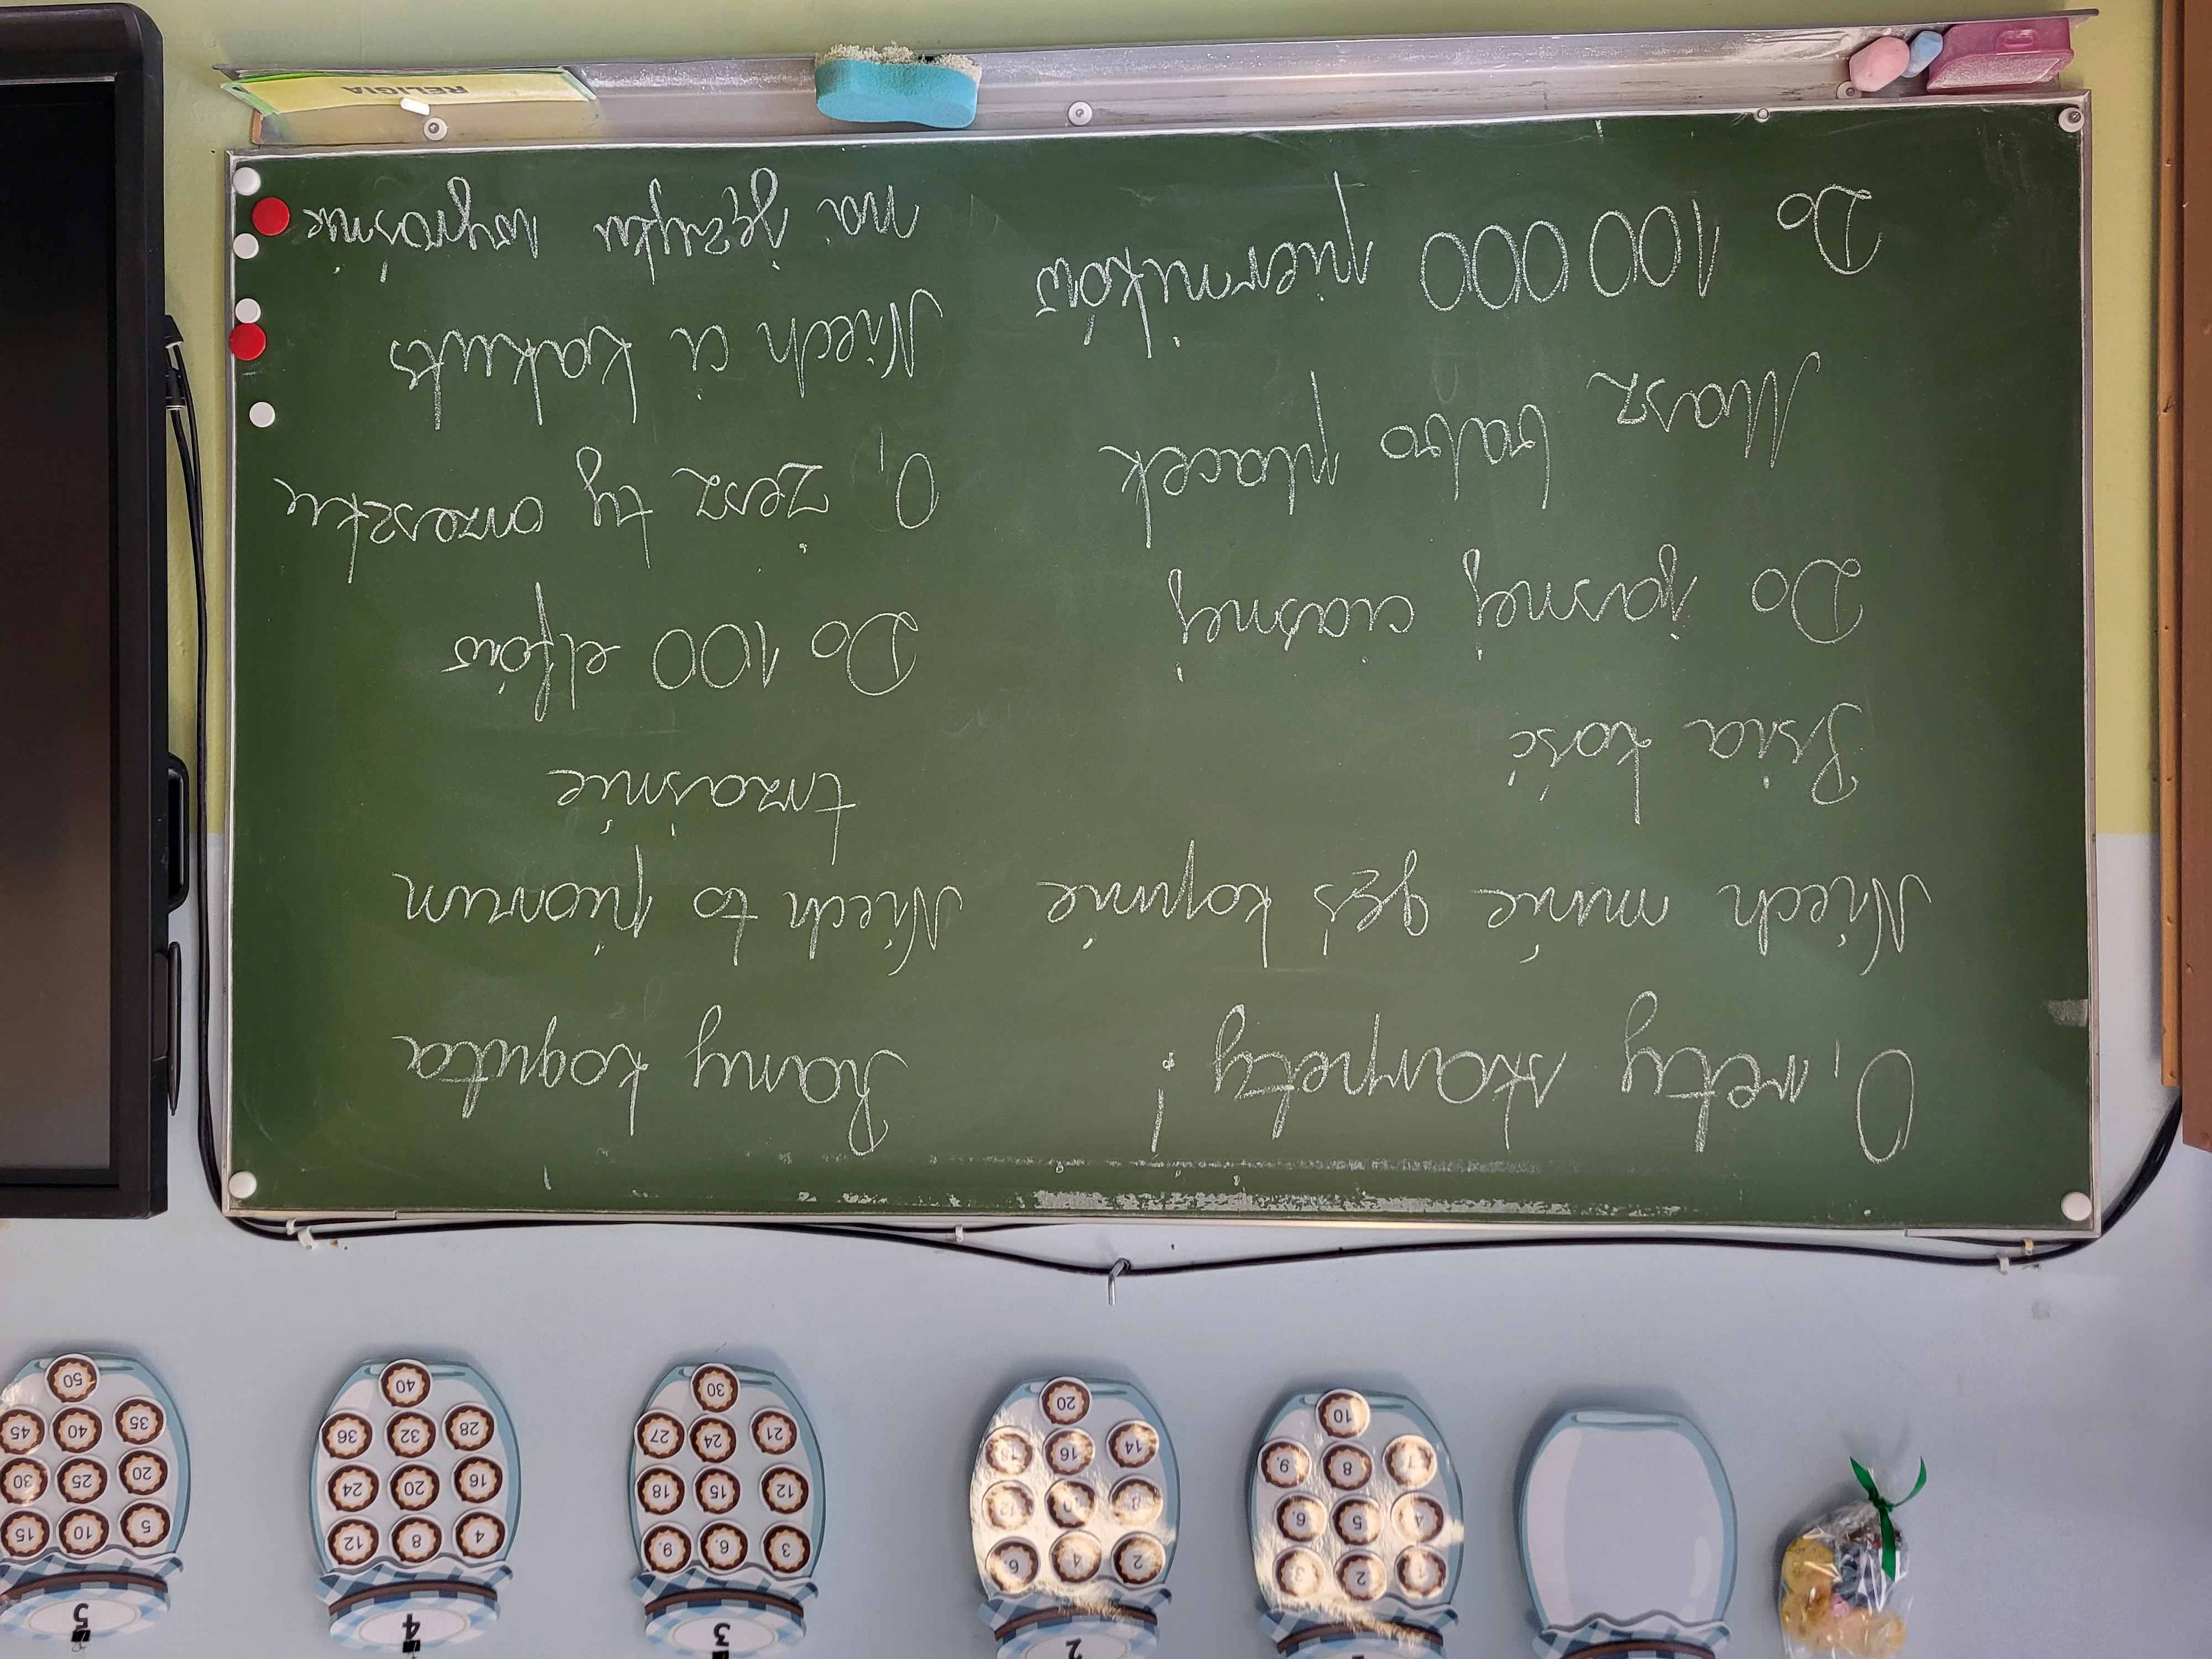 2 3 4 5
1 2 3
4 5 6.
7 8 9.
10
2 4 6
8 10 12
14 16 18
20
3 6. 9.
12 15 18
21 24 27
30
4 8 12
16 20 24
28 32 36
40
5 10 15
20 25 30
35 40 45
50
O, rety skarpety!
Niech mnie gęś kopnie
Psia kość
Do jasnej ciasnej
Masz babo placek
Do 100 000 pierników
Rany koguta
Niech to piorun
trzaśnie
Do 100 elfów
O, żesz ty orzeszku
Niech ci kaktus
na języku wyrośnie
RELIGIA